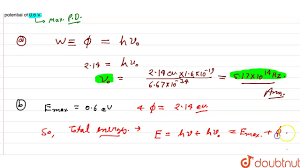 potential of 0.6 V
max. P.D.
(a) W ≡ ϕ = hν₀
2.14 = hν₀
ν₀ = 2.14 eV × 1.6 × 10⁻¹⁹ / 6.67 × 10⁻³⁴ = 5.17 × 10¹⁴ Hz.
Ans.
(b) Eₘₐₓ = 0.6 eV & ϕ = 2.14 eV
So, Total energy → E = hν + hν₀ = Eₘₐₓ + ϕ.